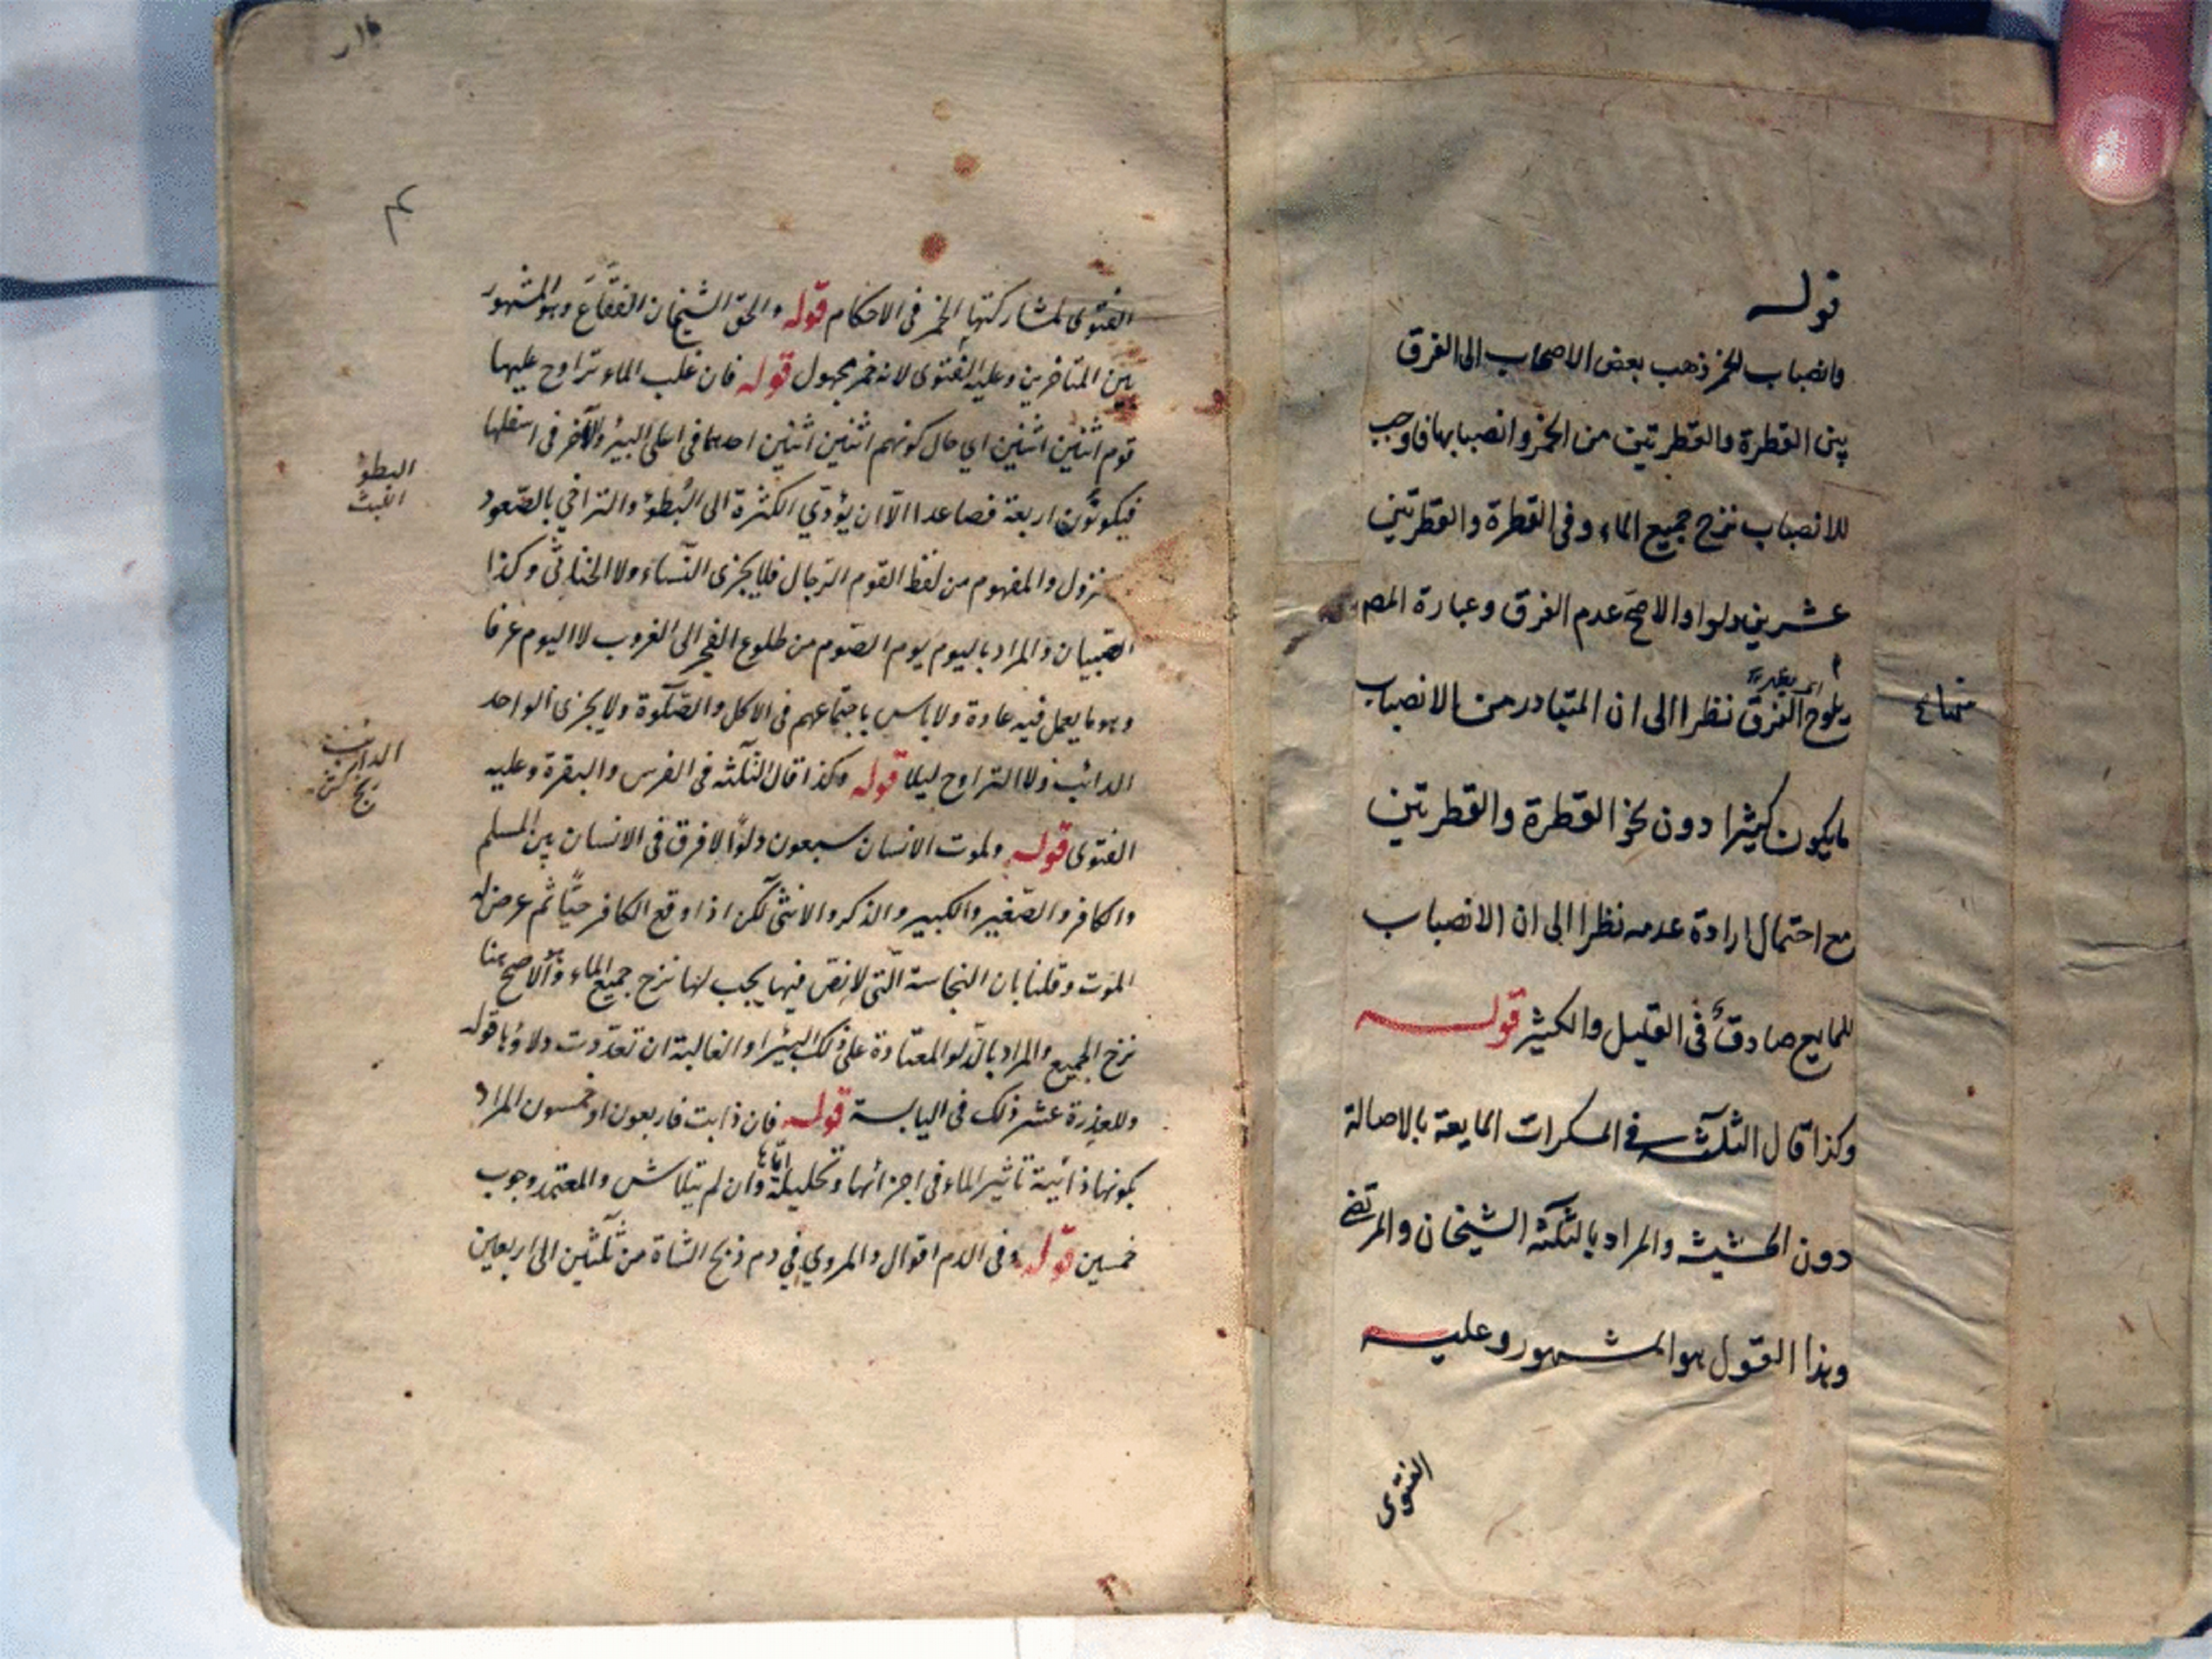 قوله
وانصباب الخمر ذهب بعض الاصحاب الى الفرق
بين القطرة والقطرتين من الخمر وانصبابها فاوجب
للانصباب نزح جميع الماء وفى القطرة والقطرتين
عشرين دلوا والاصح عدم الفرق وعبارة المص
يلوح الفرق نظرا الى ان المتبادر من الانصباب
مايكون كثيرا دون نحو القطرة والقطرتين
مع احتمال ارادة عدمه نظرا الى ان الانصباب
للمايع صادق فى القليل والكثير قوله
وكذا قال الثلثة فى المسكرات المايعة بالاصالة
دون الحشيشة والمراد بالثلثة الشيخان والمرتضى
وهذا القول هو المشهور وعليه
الفتوى
الفتوى لمشاركتها الخمر فى الاحكام قوله والحق الشيخان الفقاع وهو المشهور
بين المتاخرين وعليه الفتوى لانه خمر مجهول قوله فان غلب الماء تراوح عليها
قوم اثنين اثنين اي حال كونهم اثنين اثنين احدهما فى اعلى البير والآخر فى اسفلها
فيكونون اربعة فصاعدا الا ان يؤدي الكثرة الى البطؤ والتراخي بالصعود
نزول والمفهوم من لفظ القوم الرجال فلا يجزى النساء ولا الخناثى وكذا
الصبيان والمراد باليوم يوم الصوم من طلوع الفجر الى الغروب لا اليوم عرفا
وهو ما يعمل فيه عادة ولا باس باجتماعهم فى الاكل والصلوة ولا يجزى الواحد
الدائب ولا التراوح ليلا قوله وكذا قال الثلثة فى الفرس والبقرة وعليه
الفتوى قوله ولموت الانسان سبعون دلوا لا فرق فى الانسان بين المسلم
والكافر والصغير والكبير والذكر والانثى لكن اذا وقع الكافر حيا ثم عرض له
الموت وقلنا بان النجاسة التى لا نص فيها يجب لها نزح جميع الماء وهو الاصح هنا
نزح الجميع والمراد بالدلو المعتادة على تلك البير او الغالبة ان تعددت دلاؤها قوله
وللعذرة عشر ذلك فى اليابسة قوله فان ذابت فاربعون او خمسون المراد
بكونها ذائبة تاثير الماء فى اجزائها وتحليلة اياها وان لم يتلاش والمعتمد وجوب
خمسين قوله وفى الدم اقوال والمروي في دم ذبح الشاة من ثلثين الى اربعين
البطؤ
الدائب